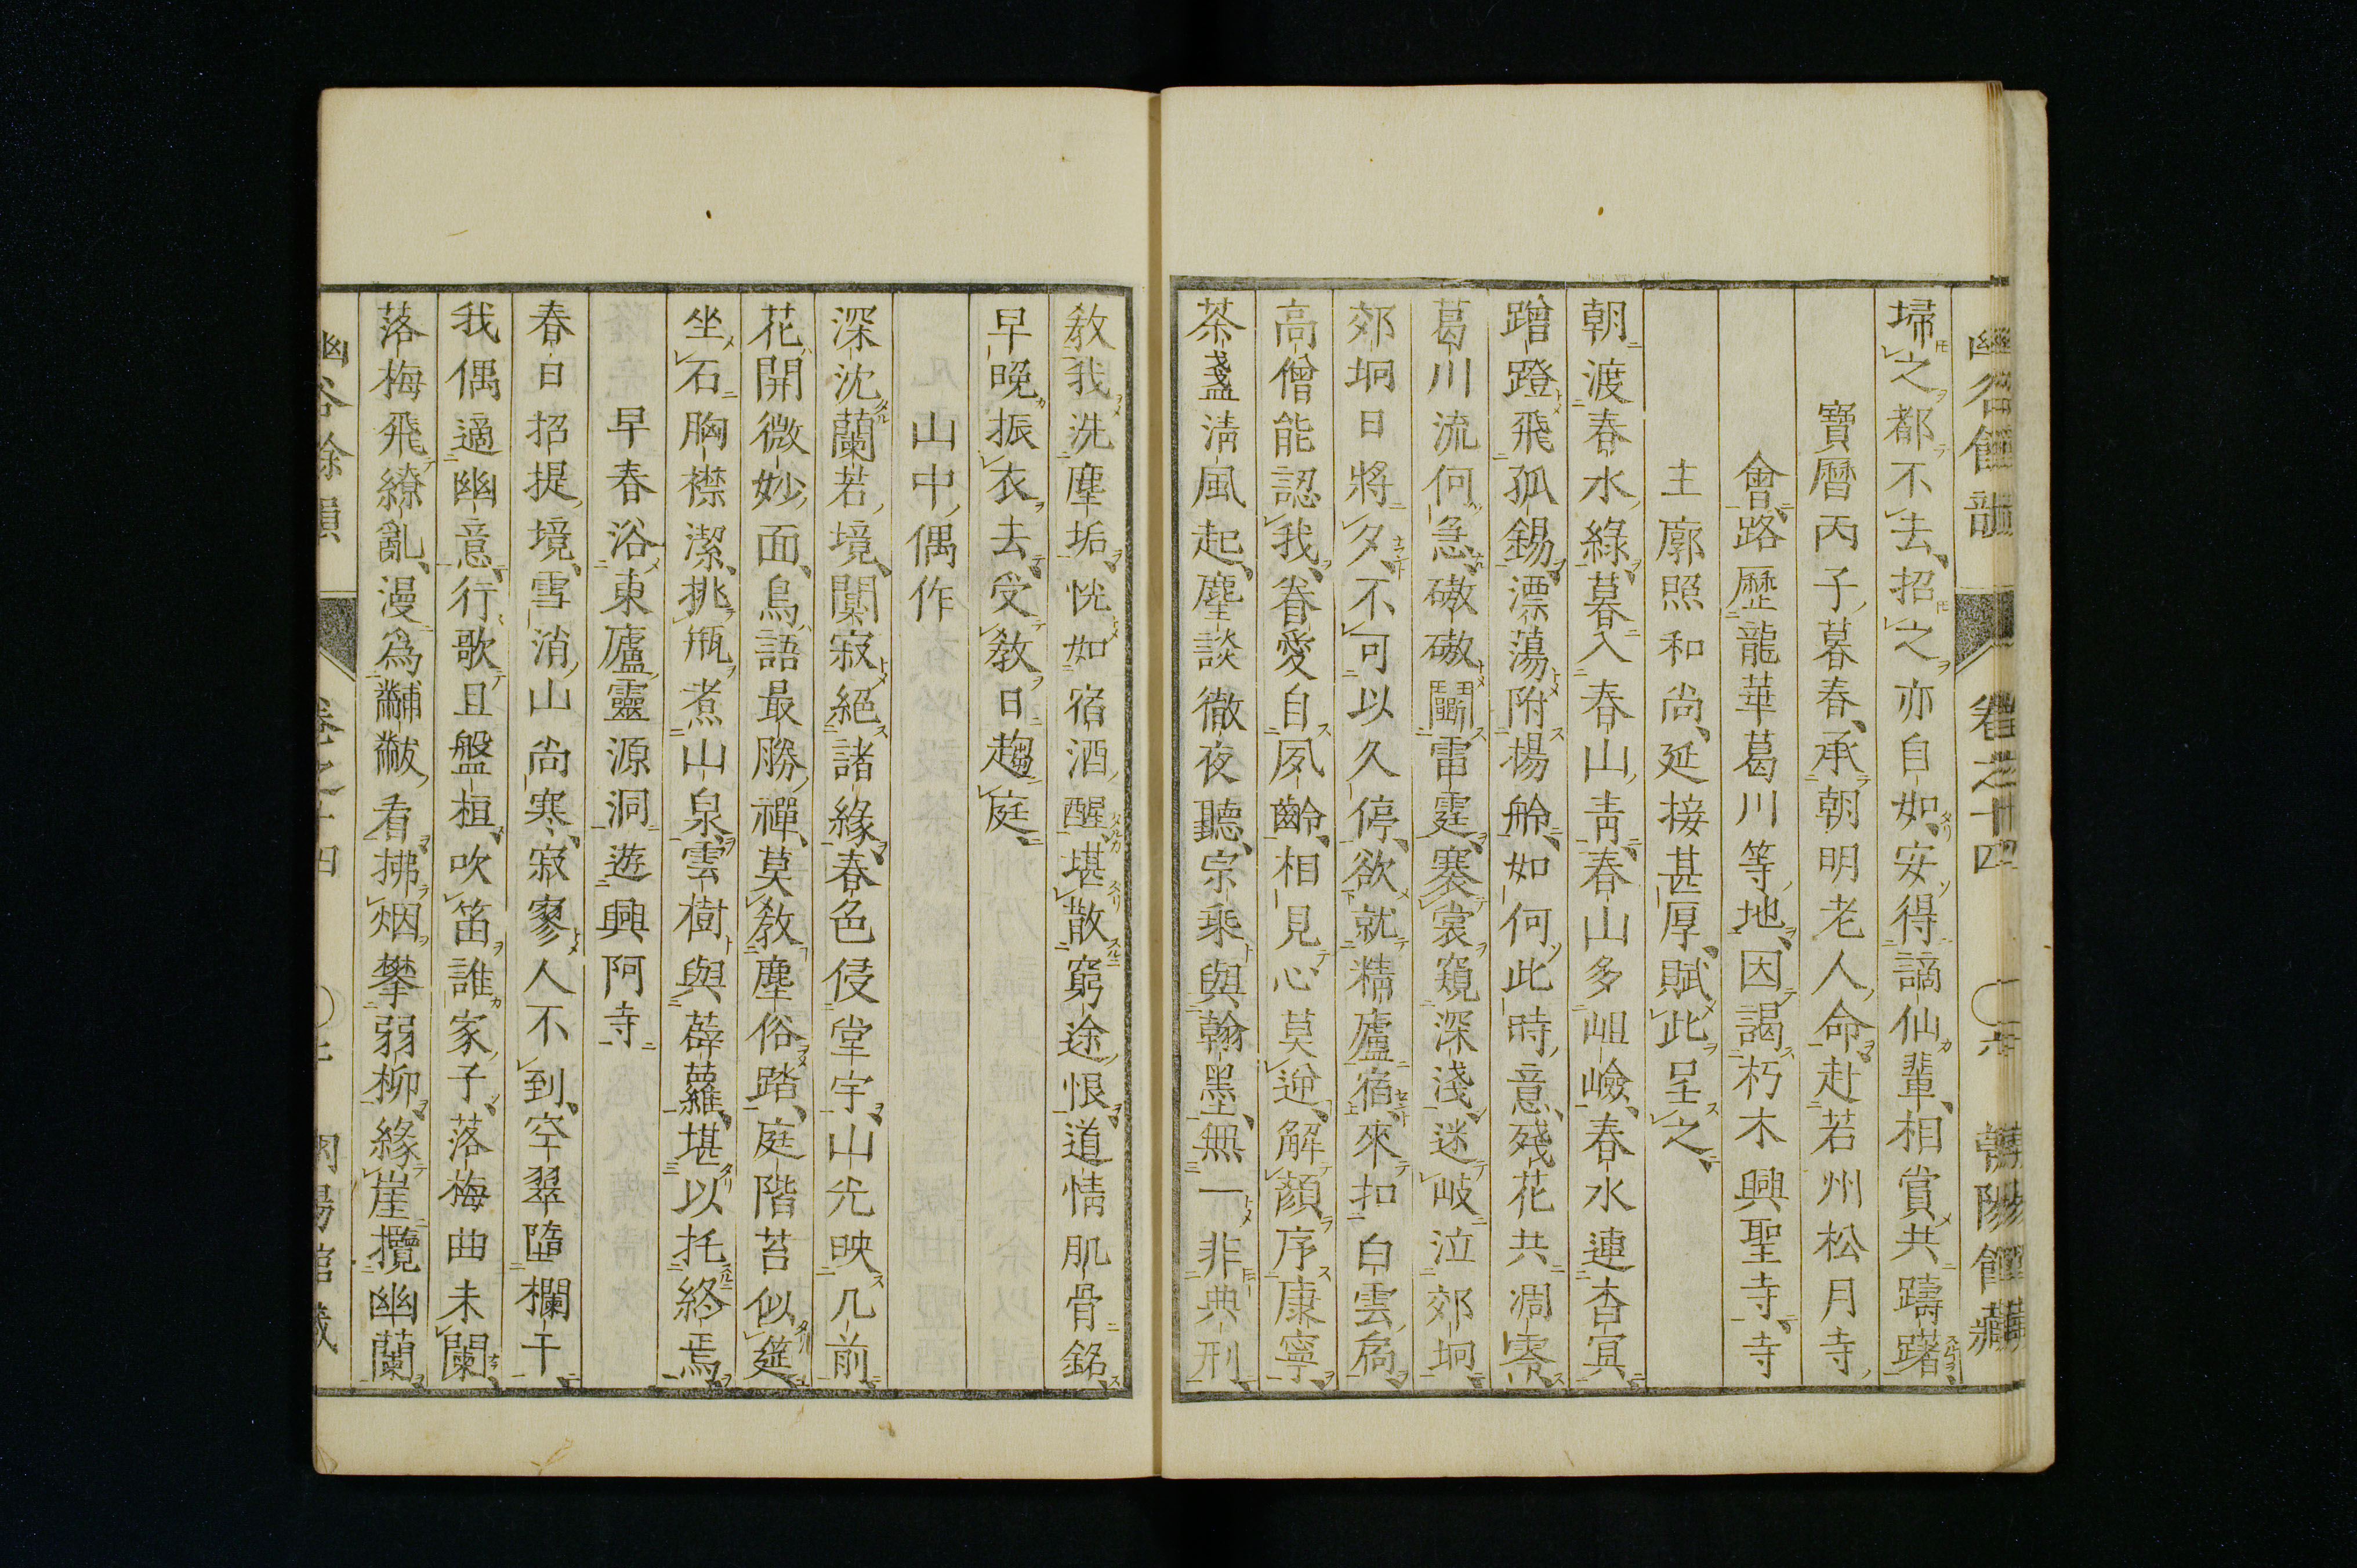 掃之都不去招之亦自如安得謫仙輩相賞共躊躇
寶曆丙子暮春承朝明老人命赴若州松月寺
會路歷龍華葛川等地因謁朽木興聖寺寺
主廓照和尚延接甚厚賦此呈之
朝渡春水綠暮入春山青春山多岨嶮春水連杳冥
蹭蹬飛孤錫漂蕩附揚舲如何此時意殘花共凋零
葛川流何急磝磝鬭雷霆褰裳窺深淺迷岐泣郊坰
郊坰日將夕不可以久停欲就精廬宿來扣白雲扃
高僧能認我眷愛自夙齡相見心莫逆解顏序康寧
茶盞淸風起麈談徹夜聽宗乘與翰墨無一非典刑
敎我洗塵垢恍如宿酒醒堪散窮途恨道情肌骨銘
早晚振衣去受敎日趨庭
山中偶作
深沈蘭若境闃寂絕諸緣春色侵堂宇山光映几前
花開微妙面鳥語最勝禪莫敎塵俗踏庭階苔似筵
坐石胸襟潔挑瓶煮山泉雲樹與薜蘿堪以托終焉
早春浴東廬靈源洞遊興阿寺
春日招提境雪消山尚寒寂寥人不到空翠墮欄干
我偶適幽意行歌且盤桓吹笛誰家子落梅曲未闌
落梅飛繚亂漫爲黼黻看拂烟攀弱柳緣崖攬幽蘭
幽谷餘韻 卷之十四